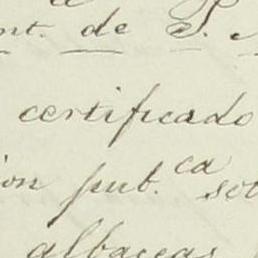 nt. de S.
certificado
ion pub.ca so
albaceas